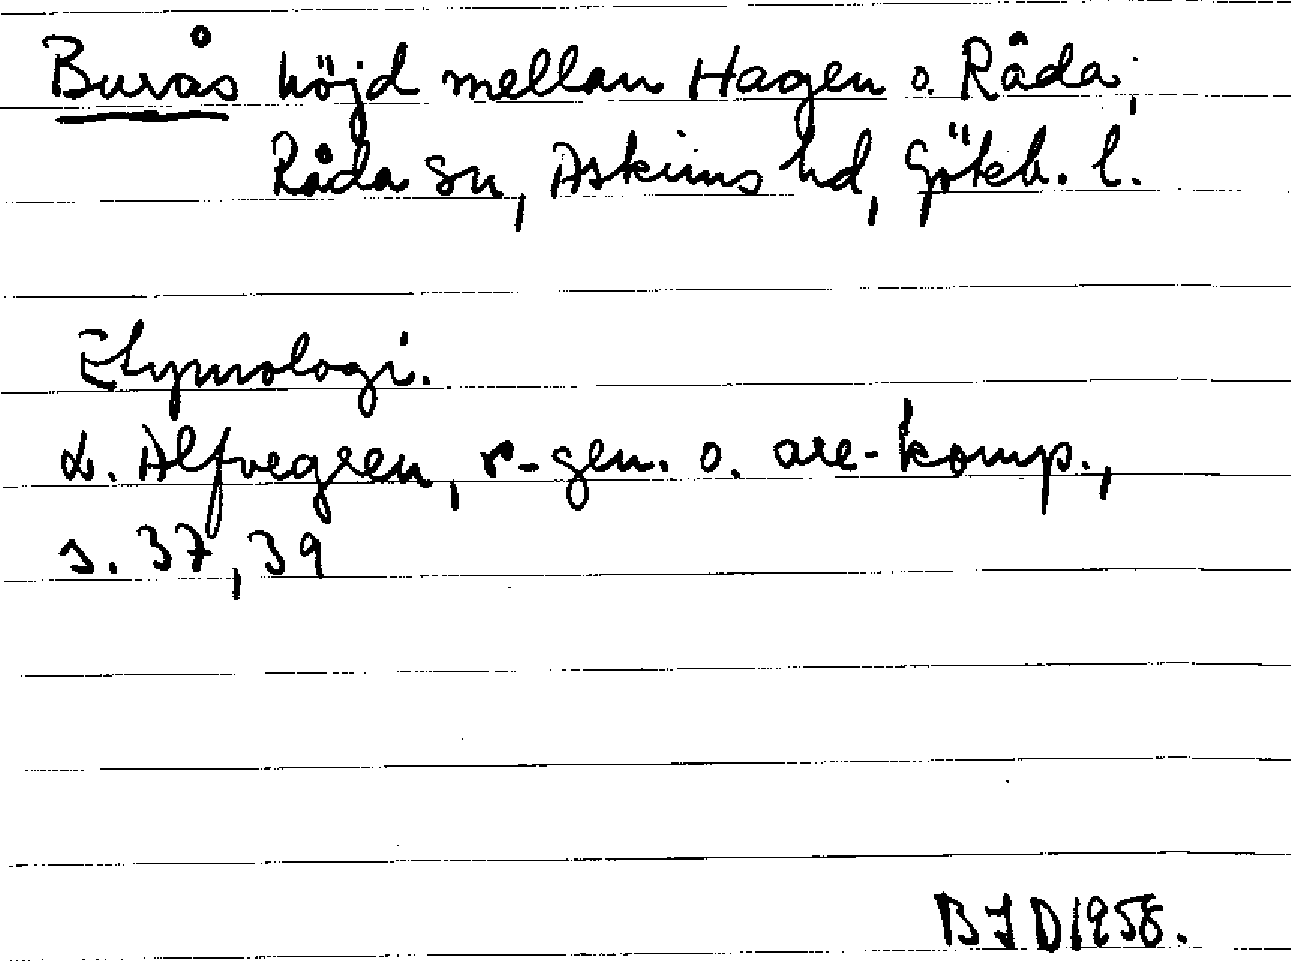 Buvås höjd mellan Hagen o. Råda;
Råda sn, Askims hd, Göteb. l.
Etymologi.
L. Alfvegren, r-gen. o. are-komp.,
s. 37, 39
BJD 1958.